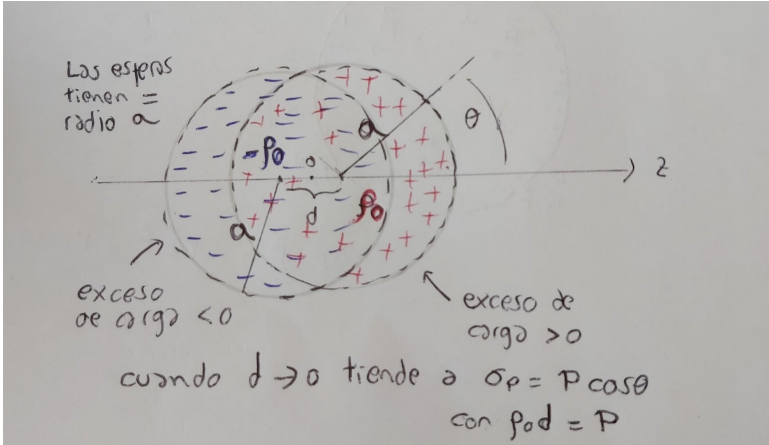 Las esferas
tienen =
radio a
a
θ
-ρ0
o
z
d
ρ0
a
exceso
de carga <0
exceso de
carga >0
cuando d → 0 tiende a σp = P cosθ
con ρ0d = P